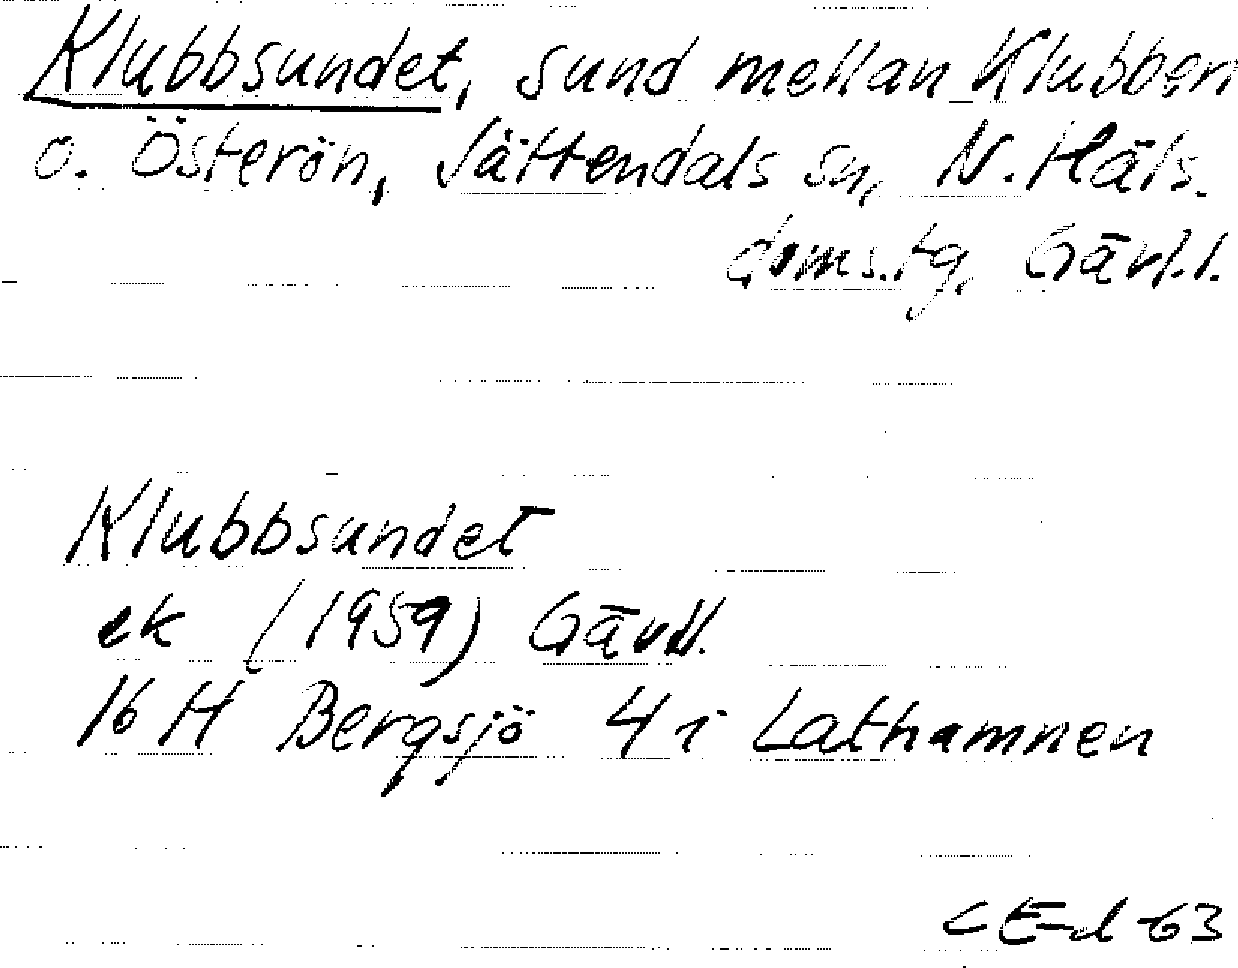 Klubbsundet, sund mellan Klubben
o. Österön, Jättendals sn, N. Häls.
doms.tg, Gävl.l.
Klubbsundet
ek (1959) Gävll.
16 H Bergsjö 4 i Lathamnen
CE-d 63